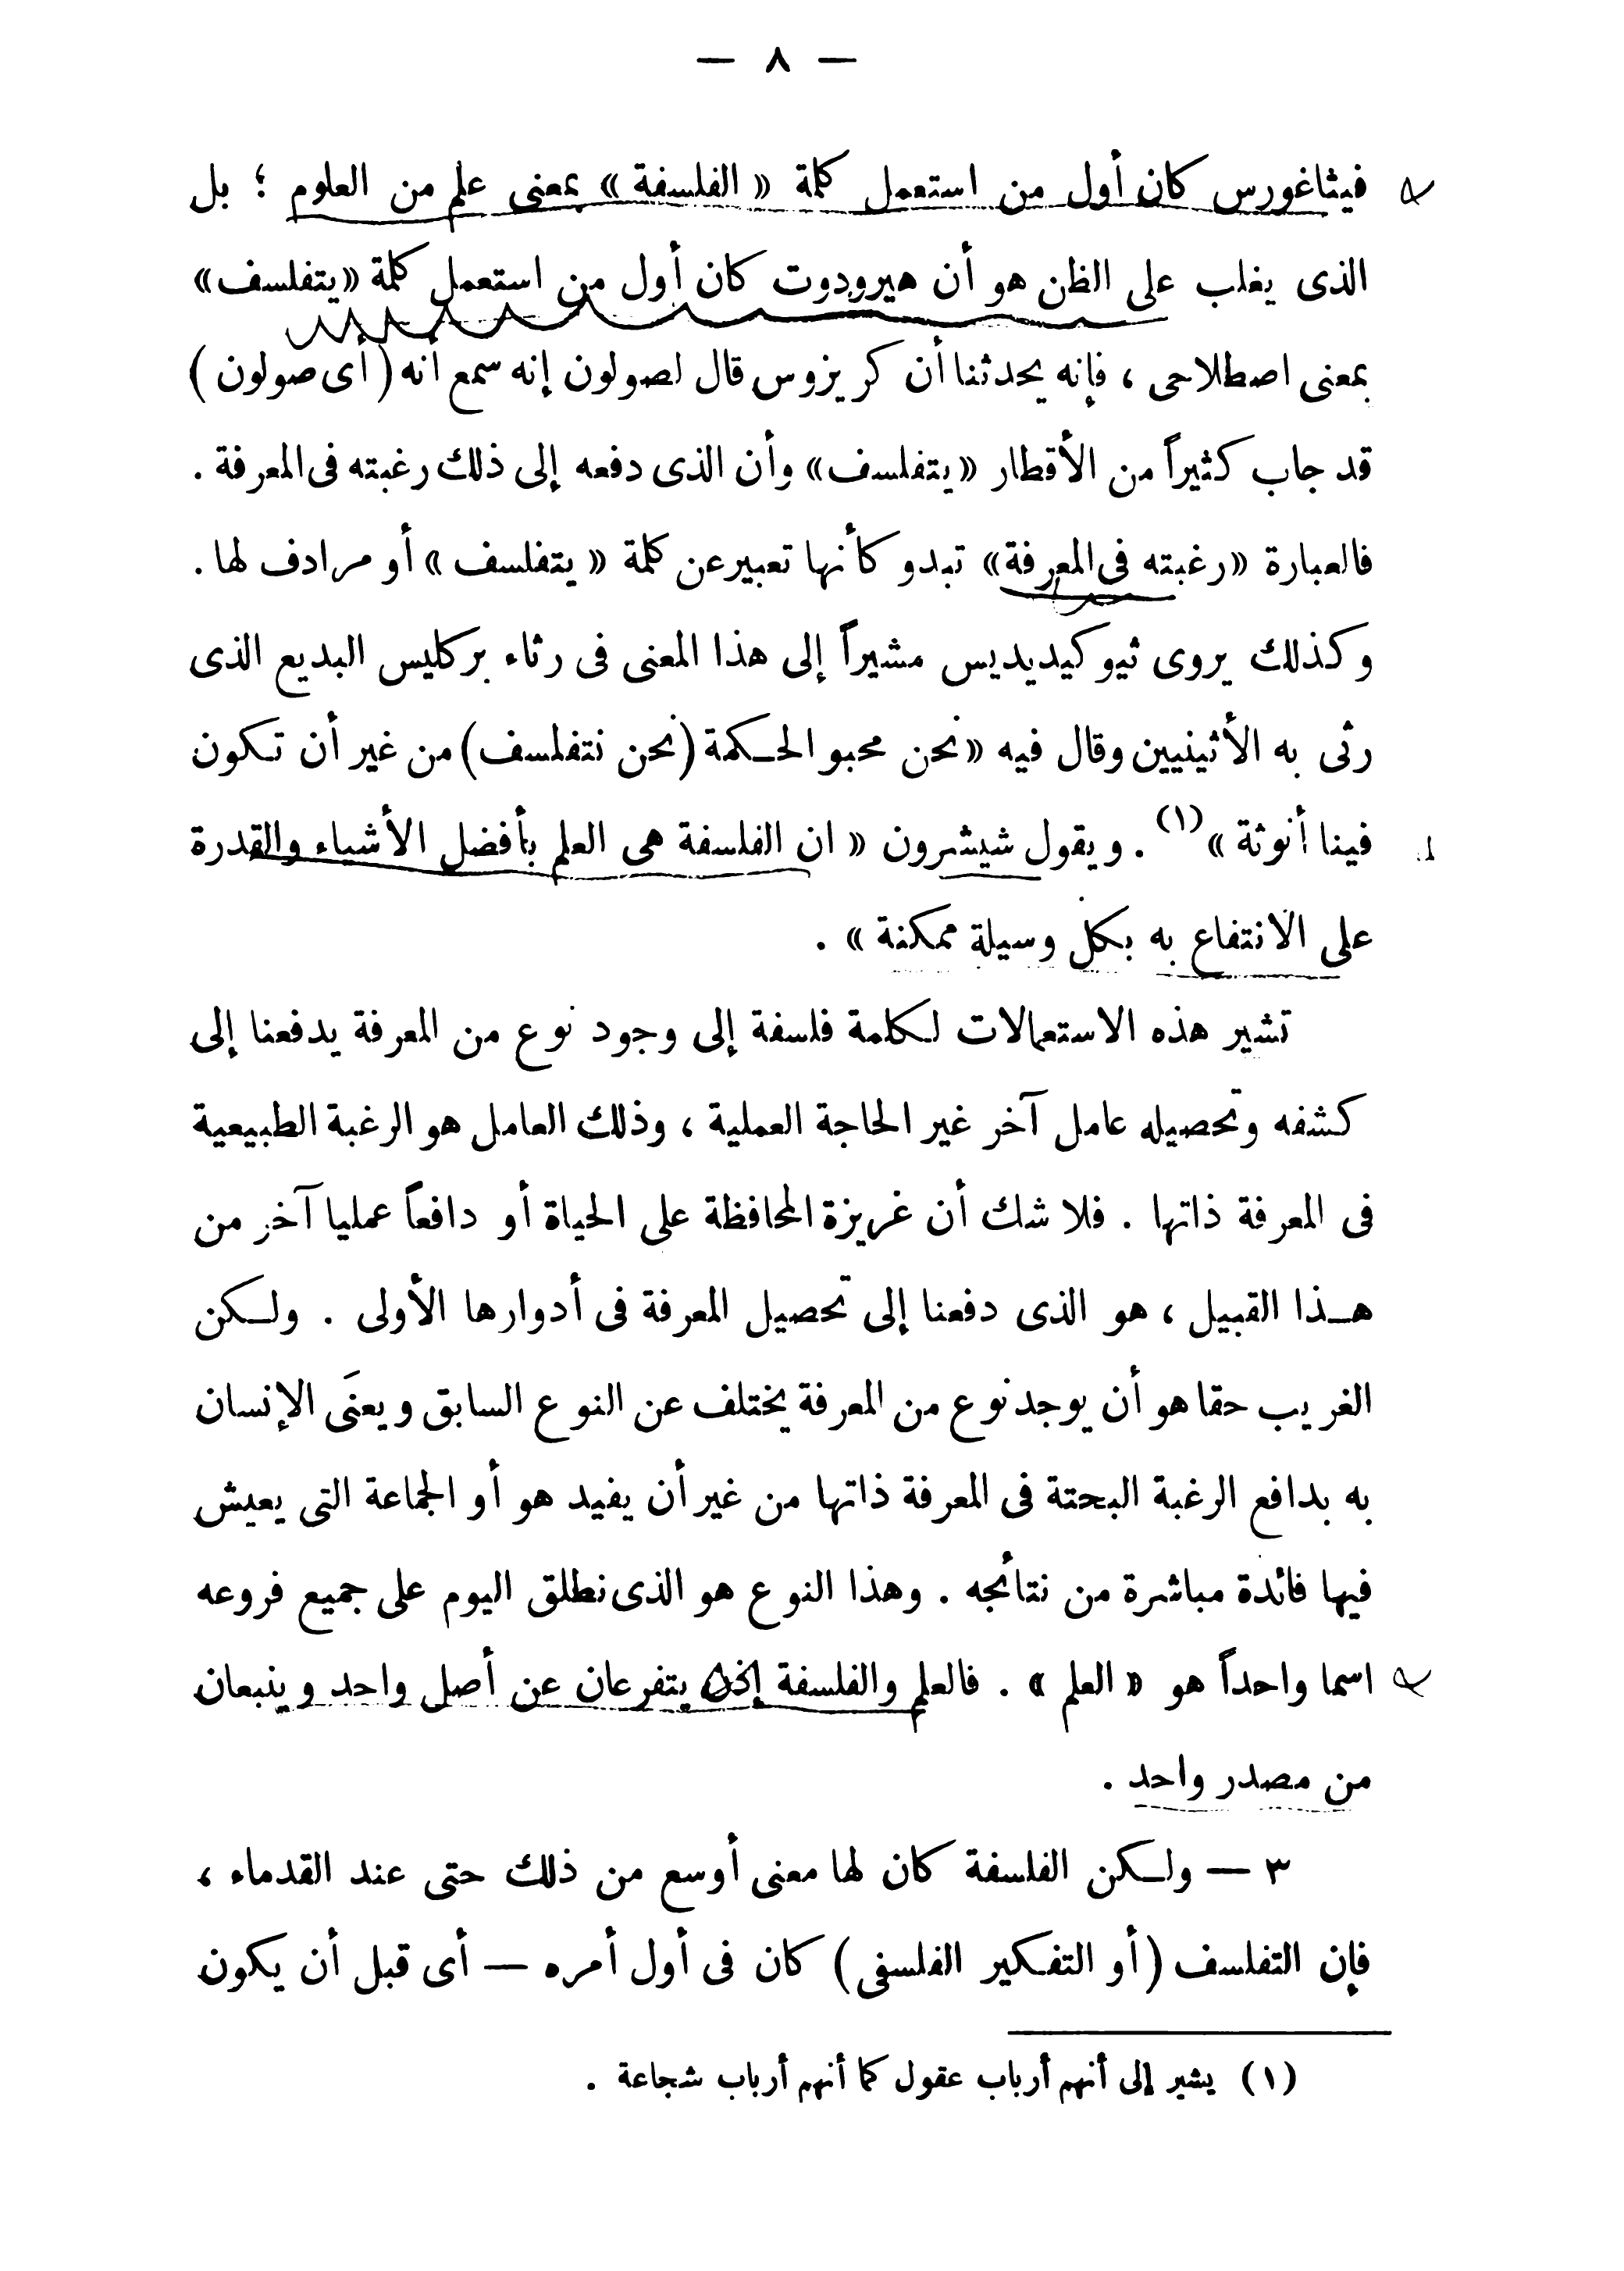 — ٨ —
فيثاغورس كان أول من استعمل كلمة « الفلسفة » بمعنى علم من العلوم ؛ بل
الذى يغلب على الظن هو أن هيرودوت كان أول من استعمل كلمة «يتفلسف»
بمعنى اصطلاحى ، فإنه يحدثنا أن كريزوس قال لصولون إنه سمع أنه ( أى صولون )
قد جاب كثيراً من الأقطار «يتفلسف» وأن الذى دفعه إلى ذلك رغبته فى المعرفة .
فالعبارة «رغبته فى المعرفة» تبدو كأنها تعبير عن كلمة « يتفلسف » أو مرادف لها .
وكذلك يروى ثيوكيديديس مشيراً إلى هذا المعنى فى رثاء بركليس البديع الذى
رثى به الأثينيين وقال فيه «نحن محبو الحكمة (نحن نتفلسف) من غير أن تكون
فينا أنوثة »(١) . ويقول شيشرون « ان الفلسفة هى العلم بأفضل الأشياء والقدرة
على الانتفاع به بكل وسيلة ممكنة » .
تشير هذه الاستعمالات لكلمة فلسفة إلى وجود نوع من المعرفة يدفعنا إلى
كشفه وتحصيله عامل آخر غير الحاجة العملية ، وذلك العامل هو الرغبة الطبيعية
فى المعرفة ذاتها . فلا شك أن غريزة المحافظة على الحياة أو دافعاً عمليا آخر من
هذا القبيل ، هو الذى دفعنا إلى تحصيل المعرفة فى أدوارها الأولى . ولكن
الغريب حقا هو أن يوجد نوع من المعرفة يختلف عن النوع السابق ويعنَى الإنسان
به بدافع الرغبة البحتة فى المعرفة ذاتها من غير أن يفيد هو أو الجماعة التى يعيش
فيها فائدة مباشرة من نتائجه . وهذا النوع هو الذى نطلق اليوم على جميع فروعه
اسما واحداً هو « العلم » . فالعلم والفلسفة إذن يتفرعان عن أصل واحد وينبعان
من مصدر واحد .
٣ — ولكن الفلسفة كان لها معنى أوسع من ذلك حتى عند القدماء ،
فإن التفلسف ( أو التفكير الفلسفى ) كان فى أول أمره — أى قبل أن يكون
(١) يشير إلى أنهم أرباب عقول كما أنهم أرباب شجاعة .